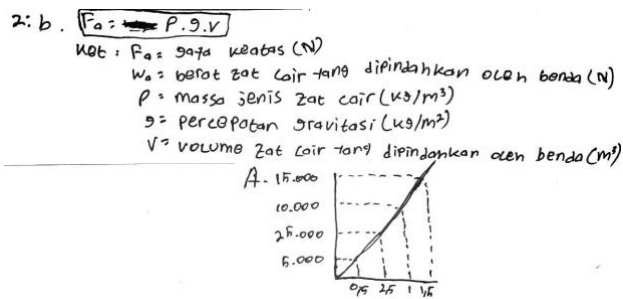 2: b. Fa = ρ.g.V
Ket : Fa = gaya keatas (N)
Wa = berat zat cair tang dipindahkan oleh benda (N)
ρ = massa jenis zat cair (kg/m³)
g = percepatan gravitasi (kg/m²)
V = volume zat cair tang dipindahkan oleh benda (m³)
A. 15.000
10.000
25.000
5.000
0,5 2,5 1 1,5